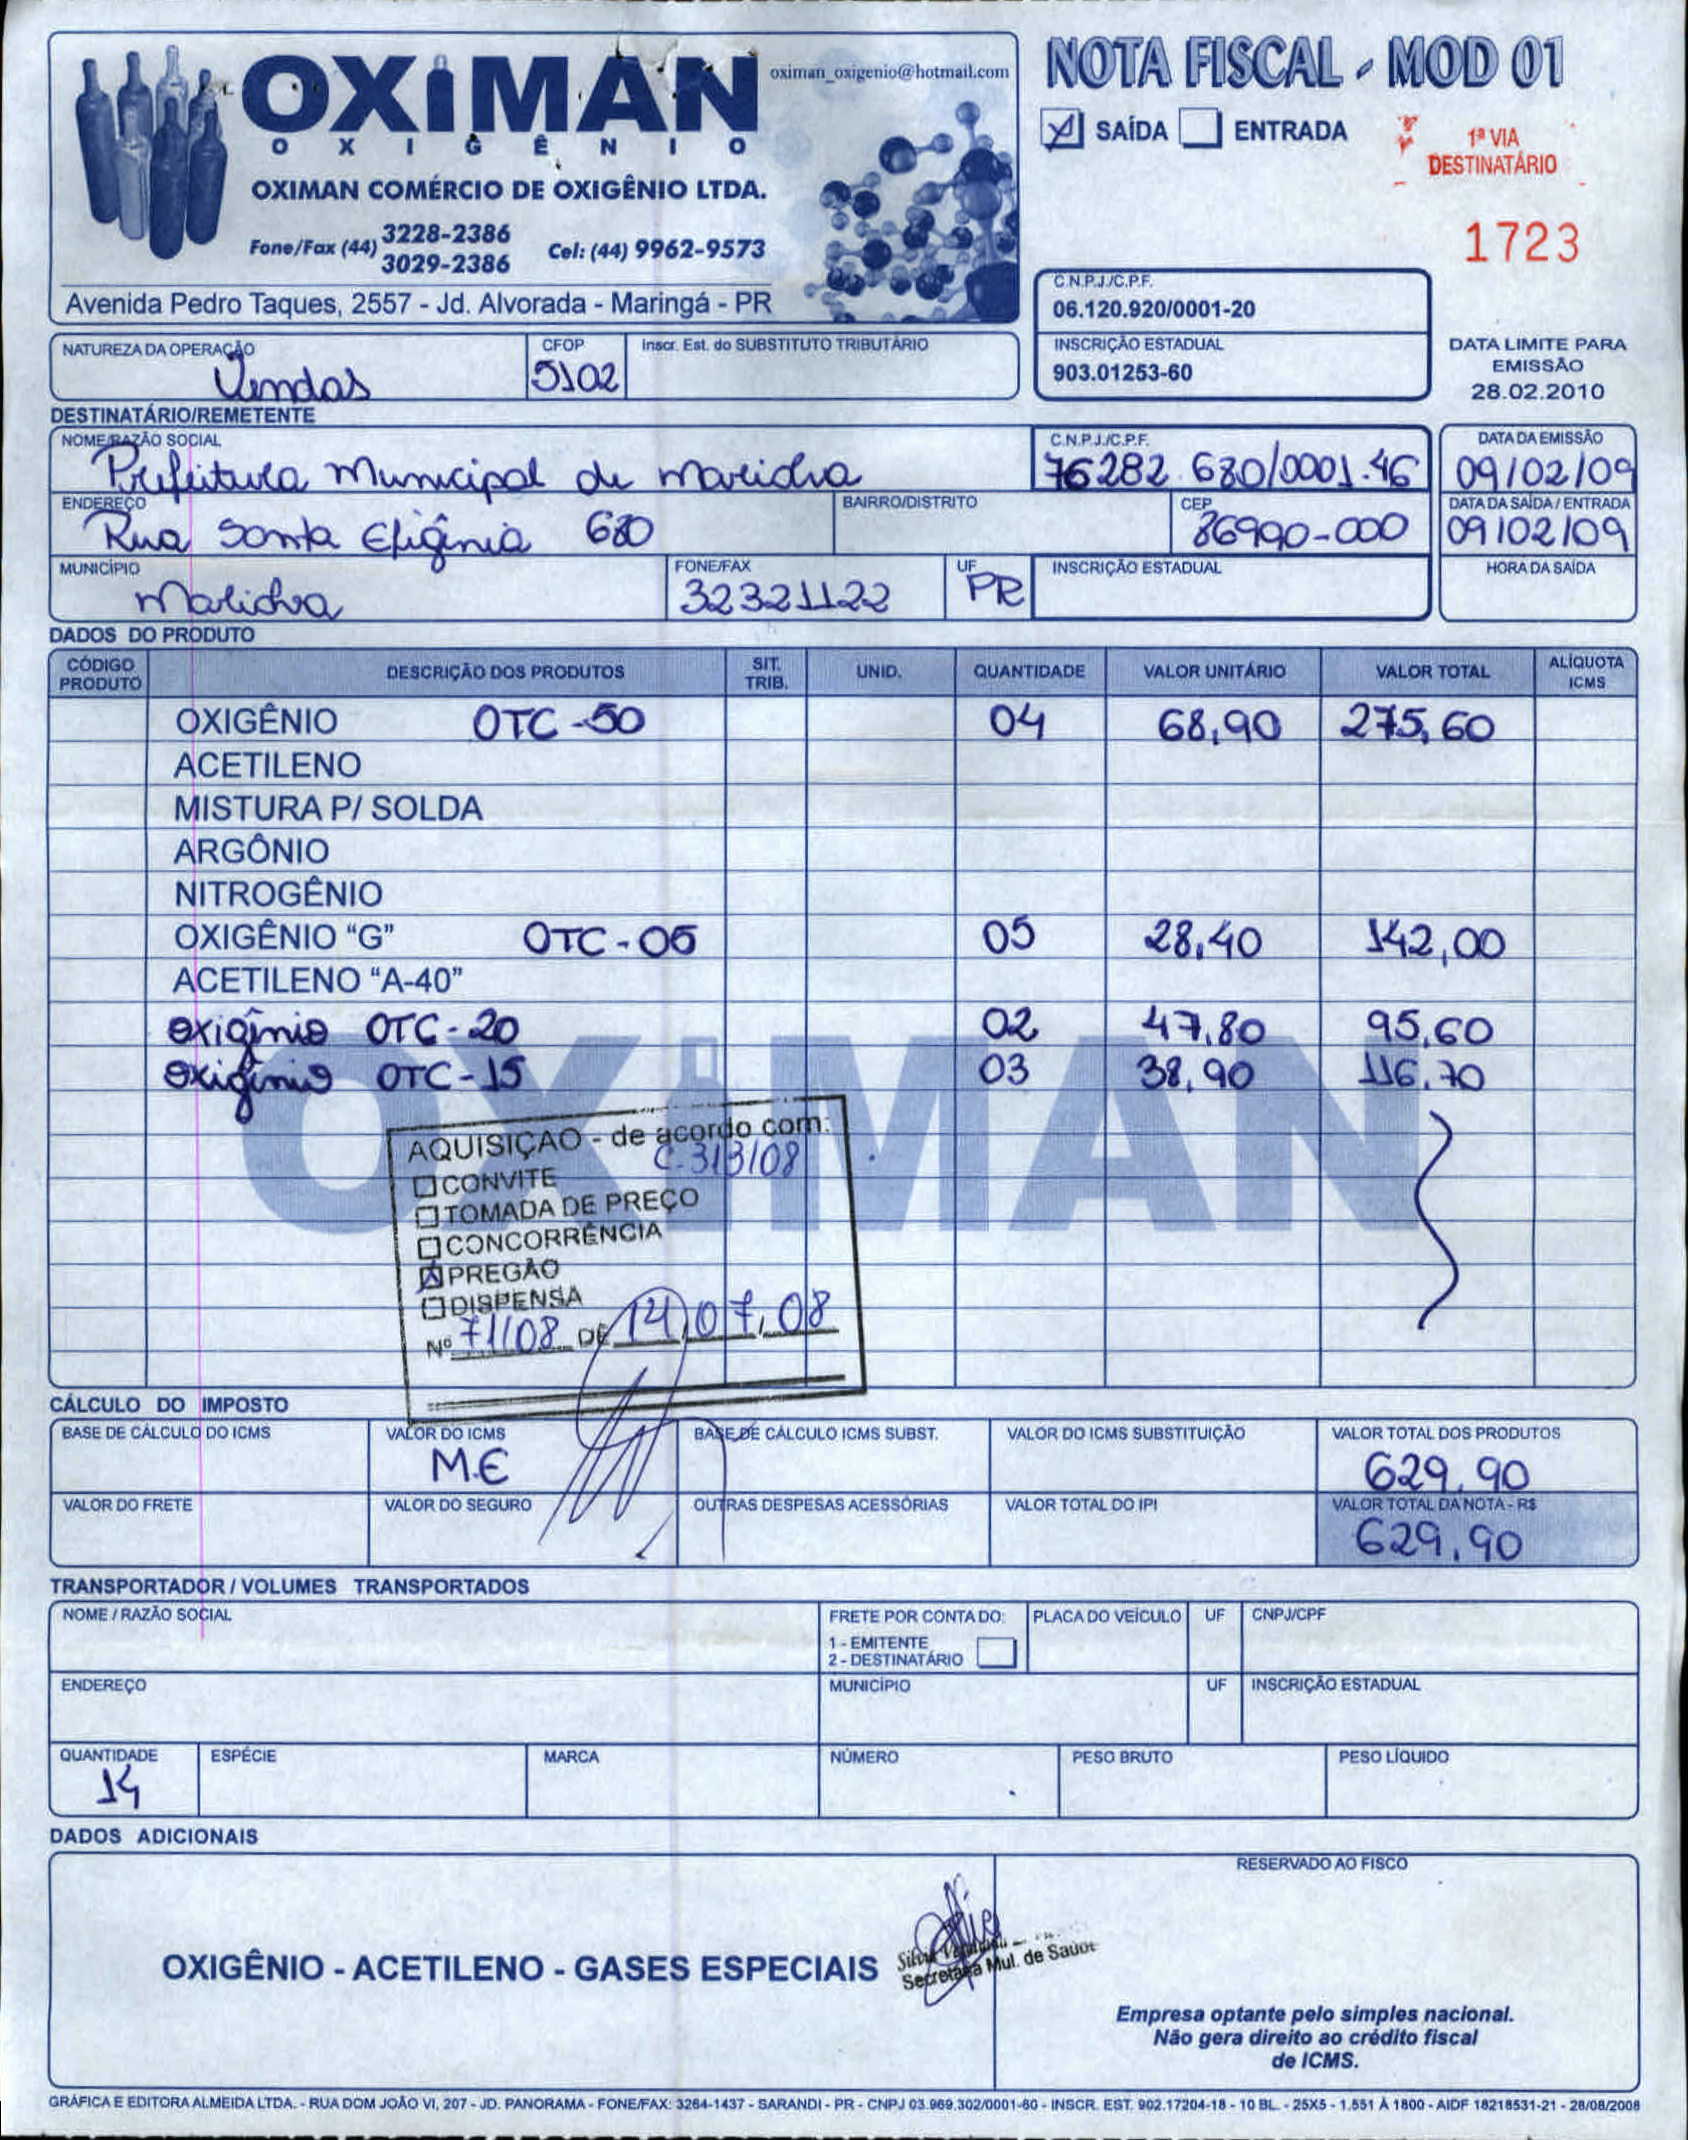 OXIMAN
OXIGÊNIO
oximan_oxigenio@hotmail.com
OXIMAN COMÉRCIO DE OXIGÊNIO LTDA.
Fone/Fax (44) 3228-2386
3029-2386
Cel: (44) 9962-9573
Avenida Pedro Taques, 2557 - Jd. Alvorada - Maringá - PR
NOTA FISCAL - MOD 01
X SAÍDA ENTRADA
1ª VIA
DESTINATÁRIO
1723
C.N.P.J./C.P.F.
06.120.920/0001-20
INSCRIÇÃO ESTADUAL
903.01253-60
DATA LIMITE PARA
EMISSÃO
28.02.2010
NATUREZA DA OPERAÇÃO
Vendas
CFOP
5102
Inscr. Est. do SUBSTITUTO TRIBUTÁRIO
DESTINATÁRIO/REMETENTE
NOME/RAZÃO SOCIAL
Prefeitura Municipal de Marialva
C.N.P.J./C.P.F.
76282.680/0001.46
DATA DA EMISSÃO
09/02/09
ENDEREÇO
Rua Santa Efigênia 680
BAIRRO/DISTRITO
CEP
86990-000
DATA DA SAÍDA / ENTRADA
09/02/09
MUNICÍPIO
Marialva
FONE/FAX
32321122
UF
PR
INSCRIÇÃO ESTADUAL
HORA DA SAÍDA
DADOS DO PRODUTO
CÓDIGO PRODUTO DESCRIÇÃO DOS PRODUTOS SIT. TRIB. UNID. QUANTIDADE VALOR UNITÁRIO VALOR TOTAL ALÍQUOTA ICMS
OXIGÊNIO OTC-50 04 68,90 275,60
ACETILENO
MISTURA P/ SOLDA
ARGÔNIO
NITROGÊNIO
OXIGÊNIO “G” OTC-05 05 28,40 142,00
ACETILENO “A-40”
oxigênio OTC-20 02 47,80 95,60
oxigênio OTC-15 03 38,90 116,70
OXIMAN
AQUISIÇÃO - de acordo com:
C. 313/08
CONVITE
TOMADA DE PREÇO
CONCORRÊNCIA
X PREGÃO
DISPENSA
Nº 71/08 DE 14,07,08
CÁLCULO DO IMPOSTO
BASE DE CÁLCULO DO ICMS
VALOR DO ICMS
M.E
BASE DE CÁLCULO ICMS SUBST.
VALOR DO ICMS SUBSTITUIÇÃO
VALOR TOTAL DOS PRODUTOS
629,90
VALOR DO FRETE
VALOR DO SEGURO
OUTRAS DESPESAS ACESSÓRIAS
VALOR TOTAL DO IPI
VALOR TOTAL DA NOTA - R$
629,90
TRANSPORTADOR / VOLUMES TRANSPORTADOS
NOME / RAZÃO SOCIAL
FRETE POR CONTA DO:
1 - EMITENTE
2 - DESTINATÁRIO
PLACA DO VEÍCULO
UF
CNPJ/CPF
ENDEREÇO
MUNICÍPIO
UF
INSCRIÇÃO ESTADUAL
QUANTIDADE
14
ESPÉCIE
MARCA
NÚMERO
PESO BRUTO
PESO LÍQUIDO
DADOS ADICIONAIS
RESERVADO AO FISCO
OXIGÊNIO - ACETILENO - GASES ESPECIAIS
Secretaria Mul. de Saúde
Empresa optante pelo simples nacional.
Não gera direito ao crédito fiscal
de ICMS.
GRÁFICA E EDITORA ALMEIDA LTDA. - RUA DOM JOÃO VI, 207 - JD. PANORAMA - FONE/FAX: 3264-1437 - SARANDI - PR - CNPJ 03.969.302/0001-60 - INSCR. EST. 902.17204-18 - 10 BL. - 25X5 - 1.551 À 1800 - AIDF 18218531-21 - 28/08/2008